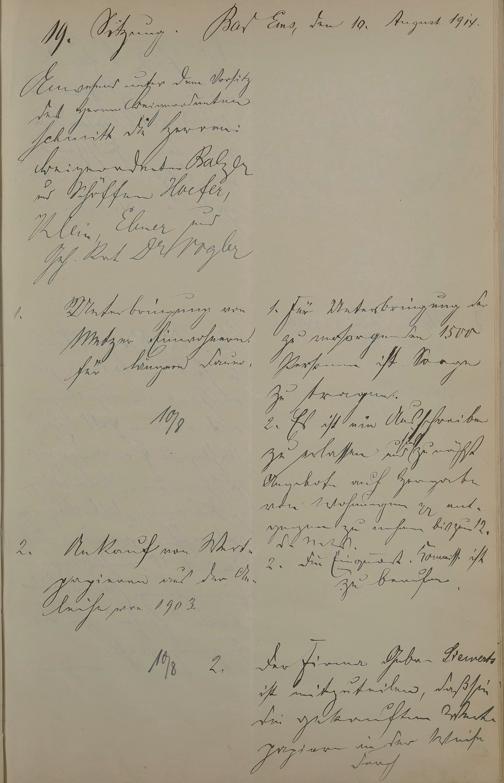 19. Sitzung. Bad Ems, den 10. August 1914.
Anwesend unter dem Vorsitz
des Herrn Beigeordneten
Schmitt die Herren:
Beigeordneter Balzer
und Schöffen Hoefer,
Klein, Ebner und
Geh. Rat Dr Vogler
1. Unterbringung von
Metzer Einwohnern
für längere Dauer.
10/8
1. Für Unterbringung der
zu versorgenden 1500
Personen ist Sorge
zu tragen.
2. Es ist ein Ausschreiben
zu erlassen und zunächst
Angebote auf Hergabe
von Wohnungen
zu nehmen bis zum 12.
2. Die Einquart. Commiss. ist
zu berufen.
2. Ankauf von Wert-
papieren aus der An-
leihe von 1903.
10/8
2. Der Firma Gebr. Siewerts
ist mitzuteilen, daß sie
die gekauften Wert-
papiere in der Weise